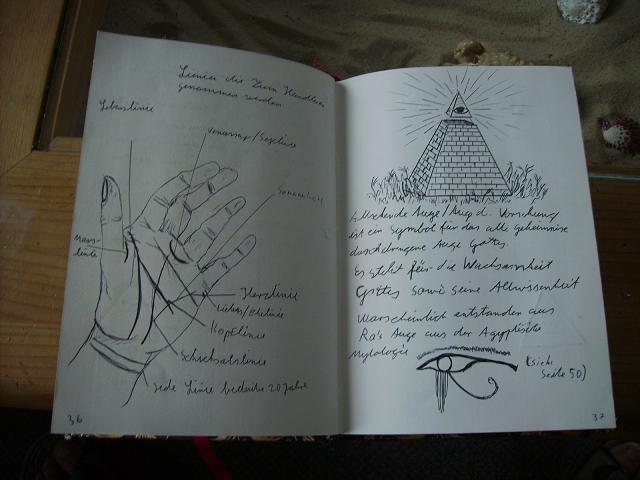 Linien die zum Handlesen
genommen werden
Lebenslinie
Venusring/
Mars-
linie
Herzlinie
Liebes/Ehelinie
Kopflinie
Schicksalslinie
jede Linie bedeutet 20 Jahre
36
Auge/Auge d. Vorsehung
ist ein Symbol für das alle geheimnisse
durchdringene Auge Gottes.
Es steht für die Wachsamkeit
Gottes sowie seine Allwissenheit
Warscheinlich entstanden aus
Ra's Auge aus der Ägyptische
Mytologie
(siehe
Seite 50)
37